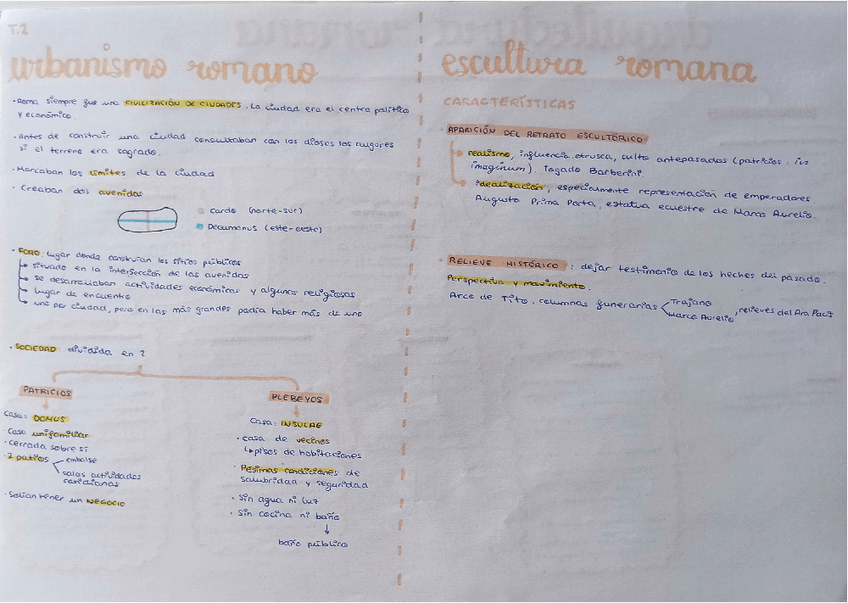 T.2
urbanismo romano
• Roma siempre fue una CIVILIZACIÓN DE CIUDADES. La ciudad era el centro político
y económico.
• Antes de construir una ciudad consultaban con los dioses los augures
si el terreno era sagrado.
• Marcaban los límites de la ciudad
• Creaban dos avenidas
Cardo (norte-sur)
Decumanus (este-oeste)
• FORO: lugar donde construían los sitios públicos
situado en la intersección de las avenidas
se desarrollaban actividades económicas y algunas religiosas
lugar de encuentro
uno por ciudad, pero en las más grandes podía haber más de uno
• SOCIEDAD: dividida en 2
PATRICIOS
Casa: DOMUS
• Casa unifamiliar
• cerrada sobre sí
• 2 patios
embalse
salas actividades
cotidianas
• Solían tener un NEGOCIO
PLEBEYOS
Casa: INSULAE
• casa de vecinos
pisos de habitaciones
• Pésimas condiciones de
salubridad y seguridad
• Sin agua ni luz
• Sin cocina ni baño
baño público
escultura romana
CARACTERÍSTICAS
• APARICIÓN DEL RETRATO ESCULTÓRICO
realismo, influencia etrusca, culto antepasados (patricios: ius
imaginum) Togado Barberini.
idealización, especialmente representación de emperadores
Augusto Prima Porta, estatua ecuestre de Marco Aurelio.
• RELIEVE HISTÓRICO: dejar testimonio de los hechos del pasado.
Perspectiva y movimiento.
Arco de Tito, columnas funerarias
Trajano
Marco Aurelio
, relieves del Ara Pacis